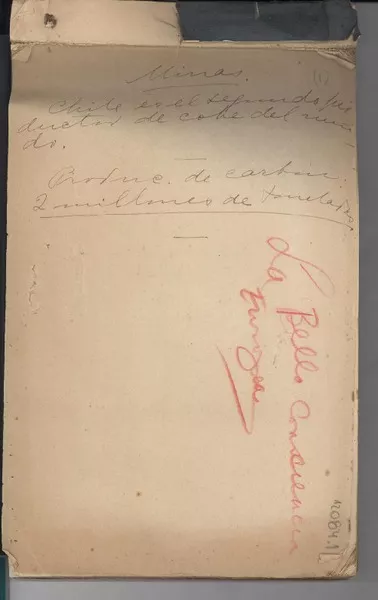 Minas.
(1)
Chile es el segundo pro
ductor de cobre del mun
do.
Produc. de carbón.
2 millones de toneladas.
La Bella Conciencia
Europea
12084.1